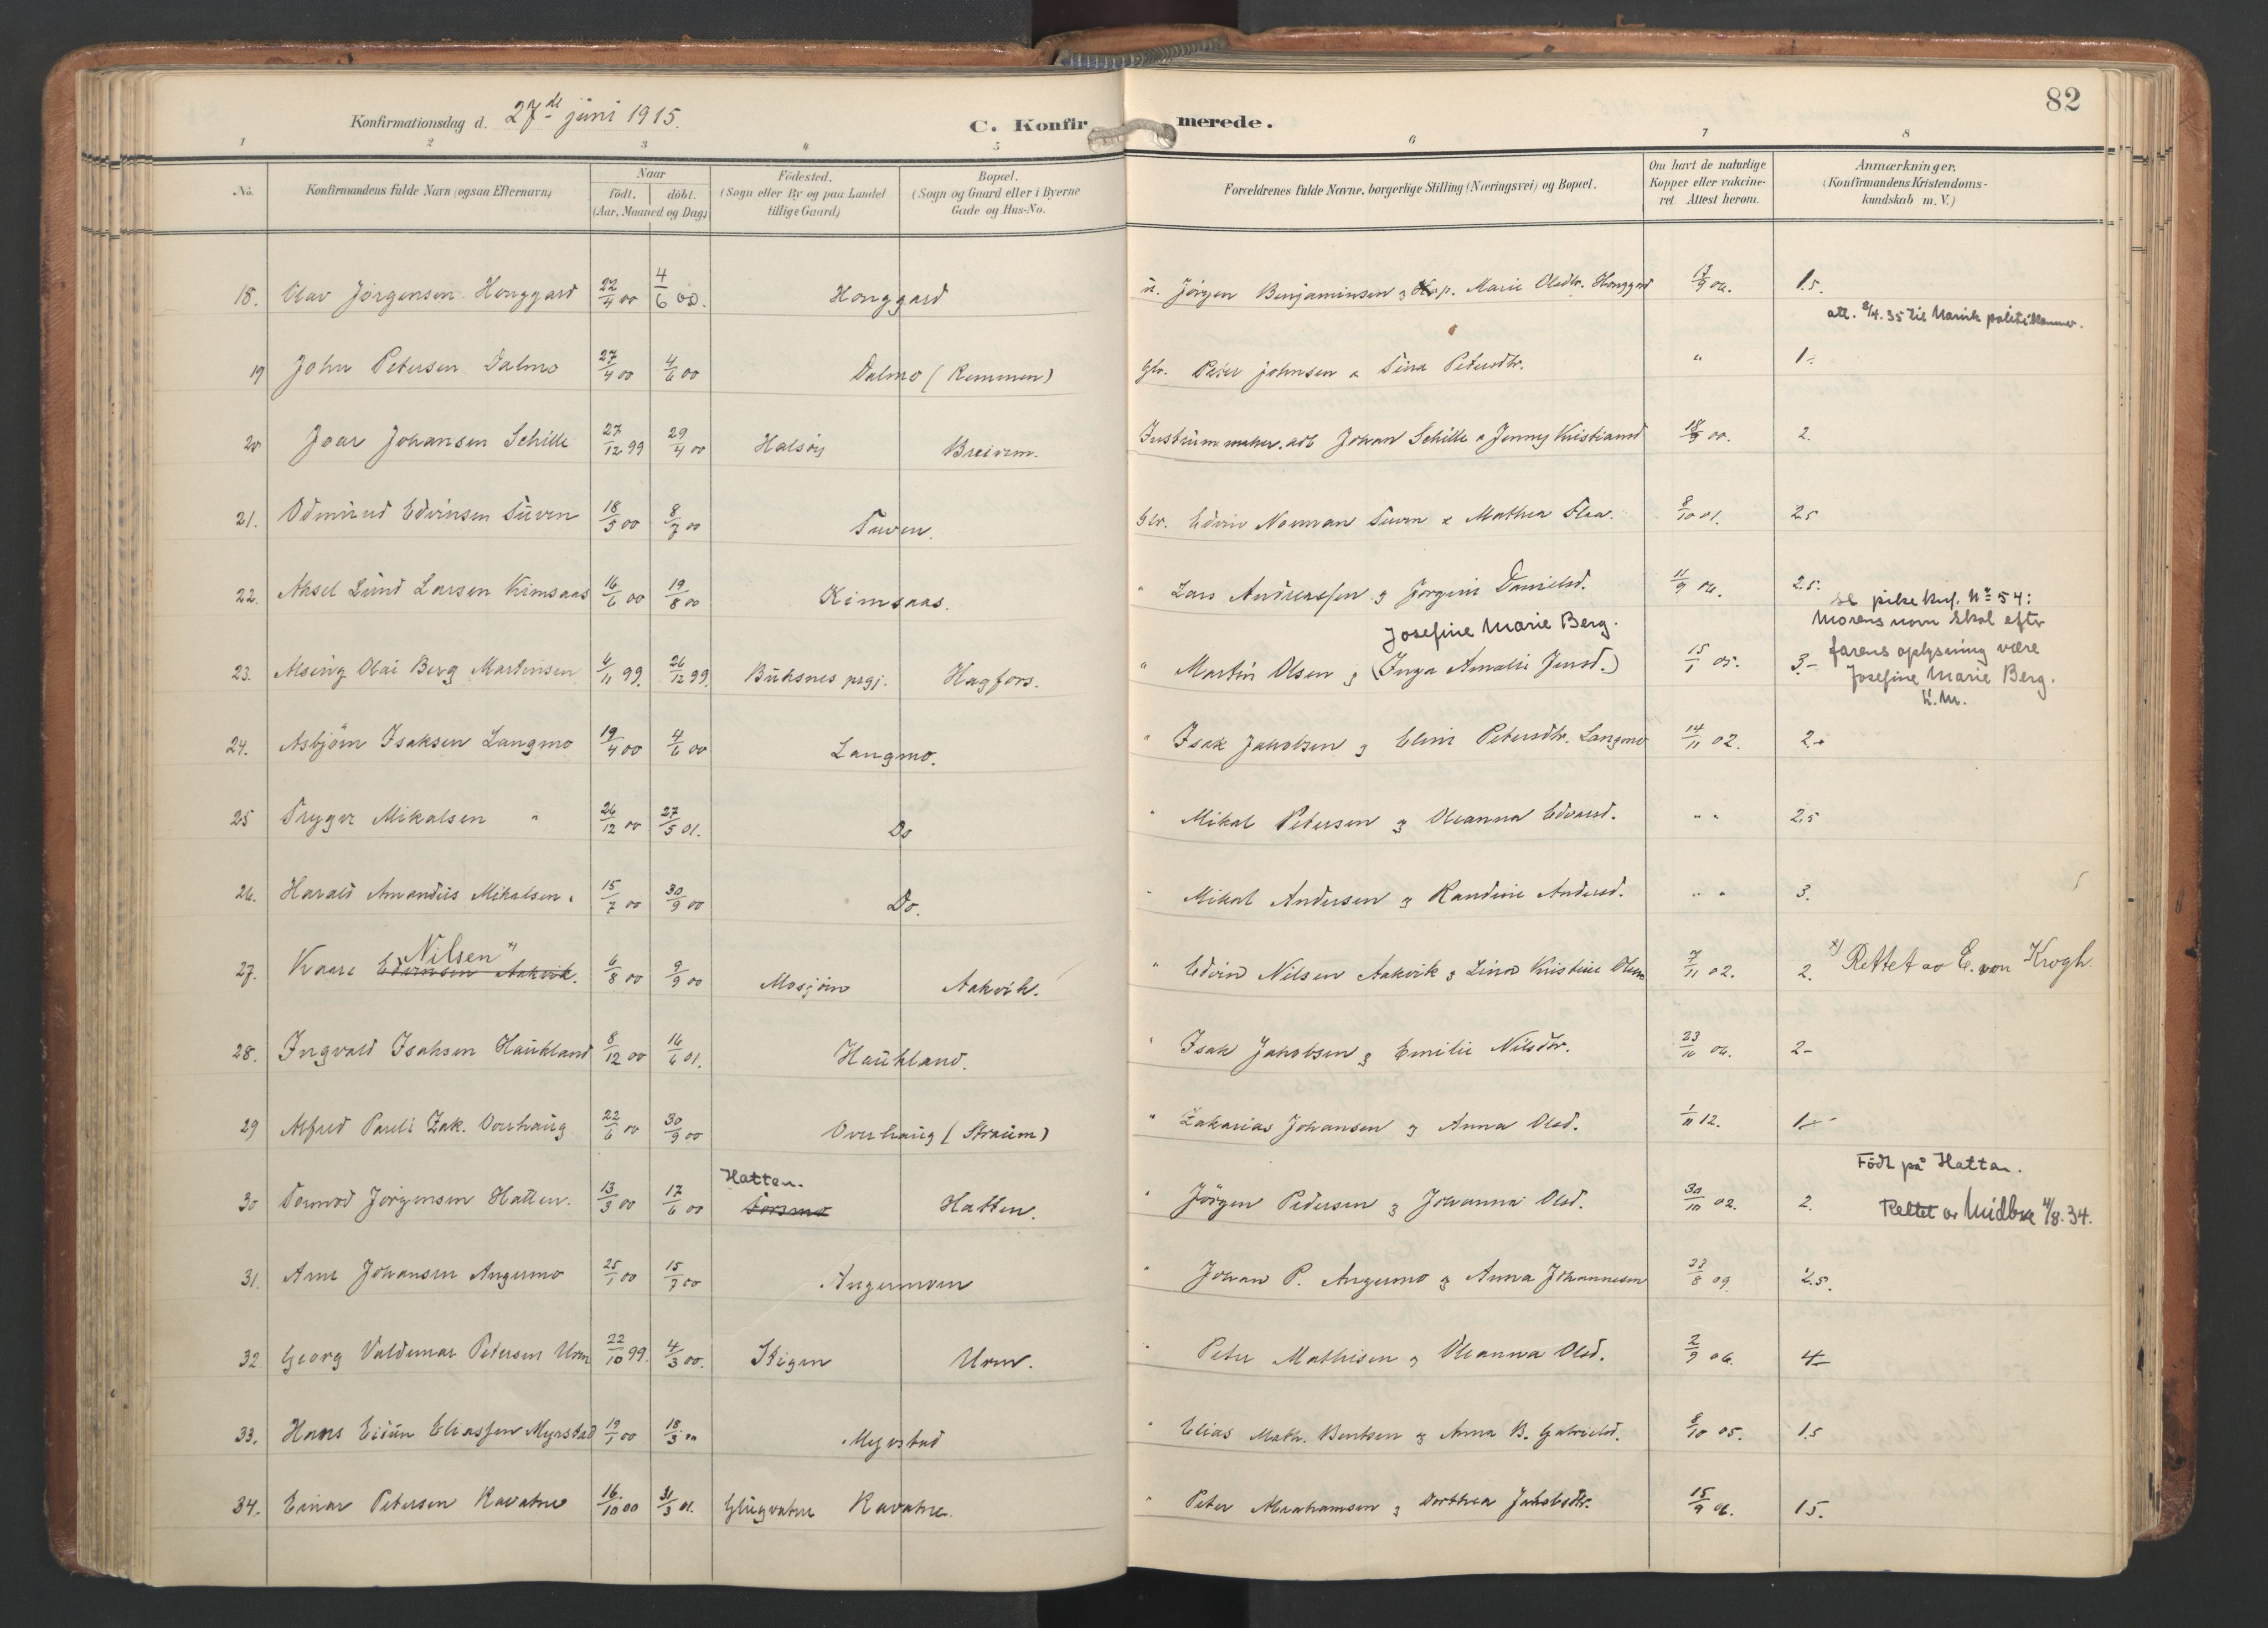 82
Konfirmationsdag d. 27de juni 1915.
C. Konfirmerede.
1 2 3 4 5 6 7 8
No. Konfirmandens fulde Navn (ogsaa Efternavn)
Naar født. døbt. (Aar, Maaned og Dag)
Fødested. (Sogn eller By og paa Landet tillige Gaard)
Bopæl. (Sogn og Gaard eller i Byerne Gade og Hus-No.
Forældrenes fulde Navne, borgerlige Stilling (Næringsvei) og Bopæl.
Om havt de naturlige Kopper eller vakcineret. Attest herom.
Anmærkninger. (Konfirmandens Kristendomskundskab m. V.)
18. Olav Jørgensen Honggard 22/4 00 4/6 00. Honggard Jørgen Benjaminsen g Marie Olsdtr. Honggrd 1.5.
att. 8/4.35 til Narvik politikammer.
19 John Petersen Dalmo 27/4 00 4/6 00 Dalmo (Remmen) Gbr. Peter Johnsen & Tina Petersdtr. " 1-.
20 Joar Johansen Schille 27/12 99 29/4 00 Halsøy Johan Schille & Jenny Kristiansd 18/9 00. 2.
21. Odmund Edvinsen Tuven 18/5 00 8/7 00 Tuven. Gbr. Edvin Norman Tuven & Mathea Olsen. 8/10 01. 2.5
22. Aksel Lund Larsen Kimsaas 16/6 00 19/8 00 Kimsaas. " Lars Andreassen g Jørgine Danielsd. 2.5.
Josefine Marie Berg.
se pike knf. No 54:
Morens navn skal efter
farens oplysning være
Josefine Marie Berg.
K.M.
23. Alsing Olai Berg Martinsen 6/11 99. 26/12 99. Buksnes prgj. Hagfors. " Martin Olsen g (Inga Amalie Jensd.) 15/1 05. 3.-
24. Asbjørn Isaksen Langmo 19/4 00 4/6 00 Langmo. " Isak Jakobsen g Eline Petersdtr. Langmo 14/11 02. 2.+
25 Trygve Mikalsen " 26/12 00 27/5 01. Do " Mikal Petersen g Oleanna Edvard. " " 2.5
26. Harald Amandus Mikalsen " 15/7 00 30/9 00 Do. " Mikal Andersen g Randine Andersd. " " 3.
Nilsen x)
27. Kaare Edvinsen Aakvik. 6/8 00 9/9 00 Mosjøen Aakvik. " Edvin Nilsen Aakvik g Lina Kristine Olsen 7/11 02. 2. x) Rettet av E. von Krogh
28. Ingvald Isaksen Haukland 8/12 00 16/6 01. Haukland. " Isak Jakobsen g Emilie Nilsdtr. 2-
29 Alfred Pauli Zak. Overhaug 22/6 00 30/9 00 Overhaug (Straum) " Zakarias Johansen g Anna Olsd. 1/11 12. 1-
Hatten.
Født på Hatten.
30 Tormod Jørgensen Hatten. 13/3 00 17/6 00 Forsmo Hatten. " Jørgen Pedersen g Johanna Olsd. 30/10 02. 2. Rettet av Midbøe 4/8.34.
31. Arne Johansen Angermo 25/1 00 15/7 00 Angermoen " Johan P. Angermo g Anna Johannesen 22/8 09. 2.5.
32. Georg Valdemar Petersen Uren 22/10 99. 4/3 00. Stigen Uren. " Peter Mathisen g Oleanna Olsd. 2/9 06. 4-
33. Hans Eidun Eliassen Myrstad 19/1 00 18/3 00 Myrstad " Elias Math. Bentsen g Anna B. Gabrielsd. 8/10 05. 1.5
34. Einar Petersen Ravatne 16/10 00 31/3 01. Glugvatne Ravatne. " Peter Abrahamsen g Dorthea Jakobsdtr. 15/9 06. 1.5.